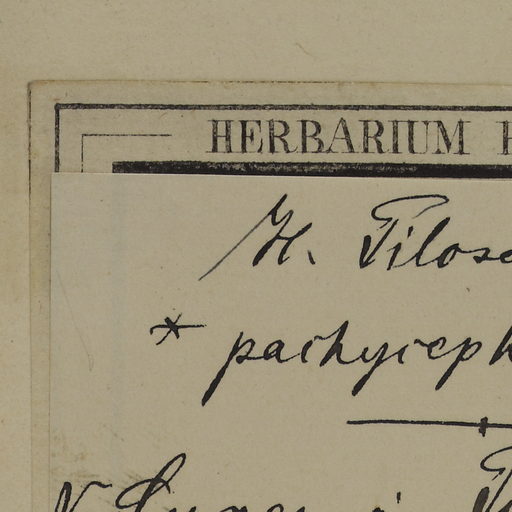 HERBARIUM
H. Pilose
* pachyceph